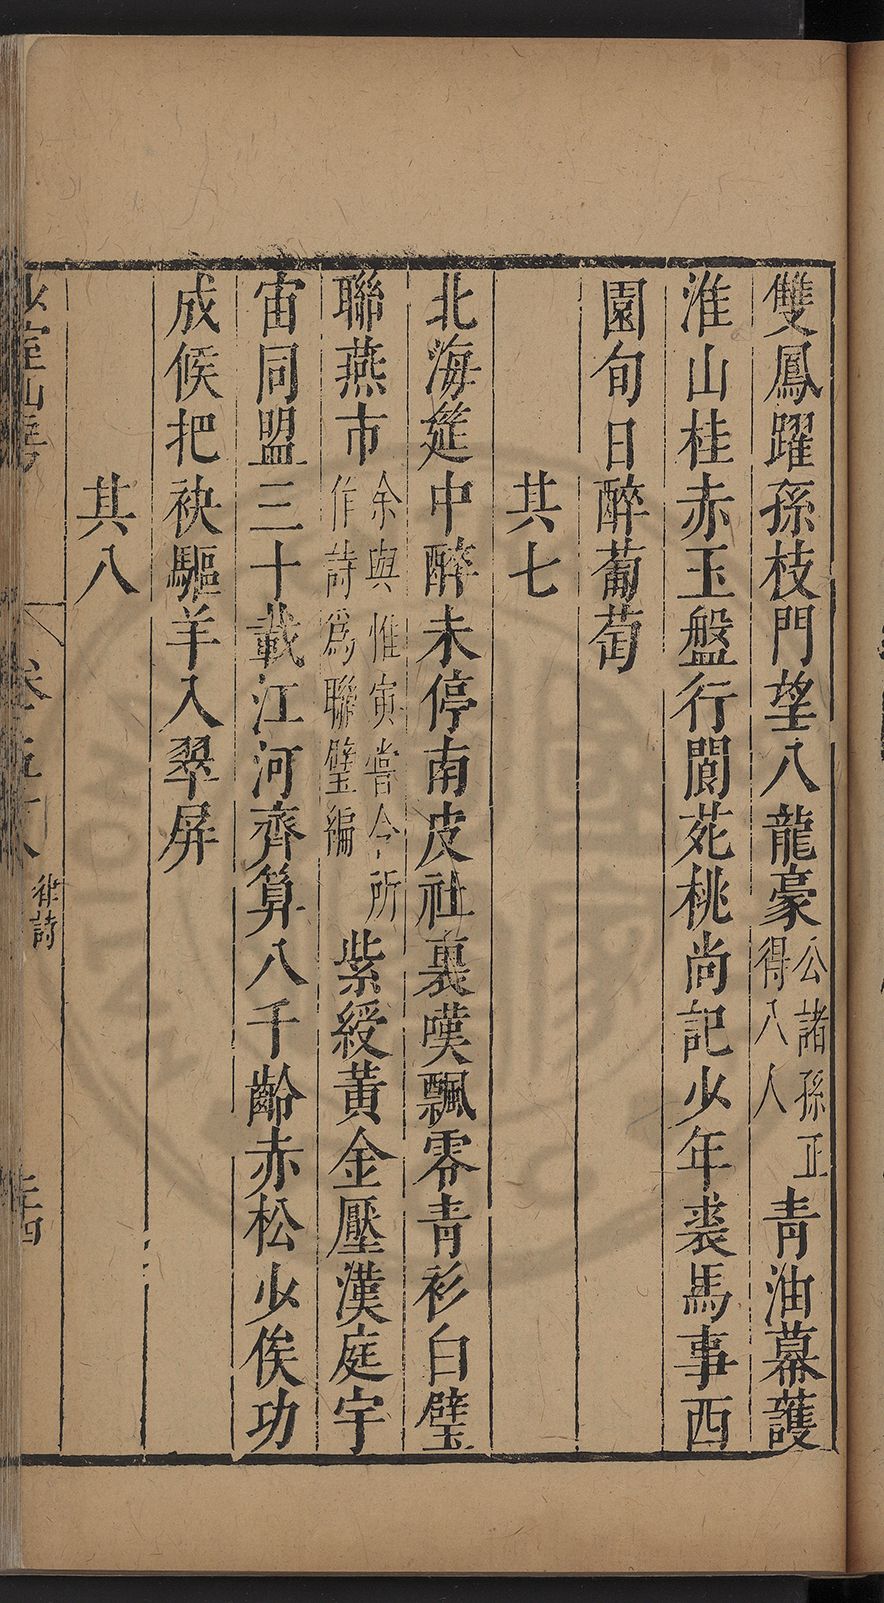 雙鳳躍孫枝門望八龍豪公諸孫正得八人青油幕護
淮山桂赤玉盤行閬苑桃尚記少年裘馬事西
園旬日醉葡萄
其七
北海筵中醉未停南皮社裏嘆飄零青衫白璧
聯燕市余與惟寅嘗合所作詩爲聯璧編紫綬黃金壓漢庭宇
宙同盟三十載江河齊算八千齡赤松少俟功
成候把袂驅羊入翠屏
其八
少室山房 卷五十八 律詩 三四